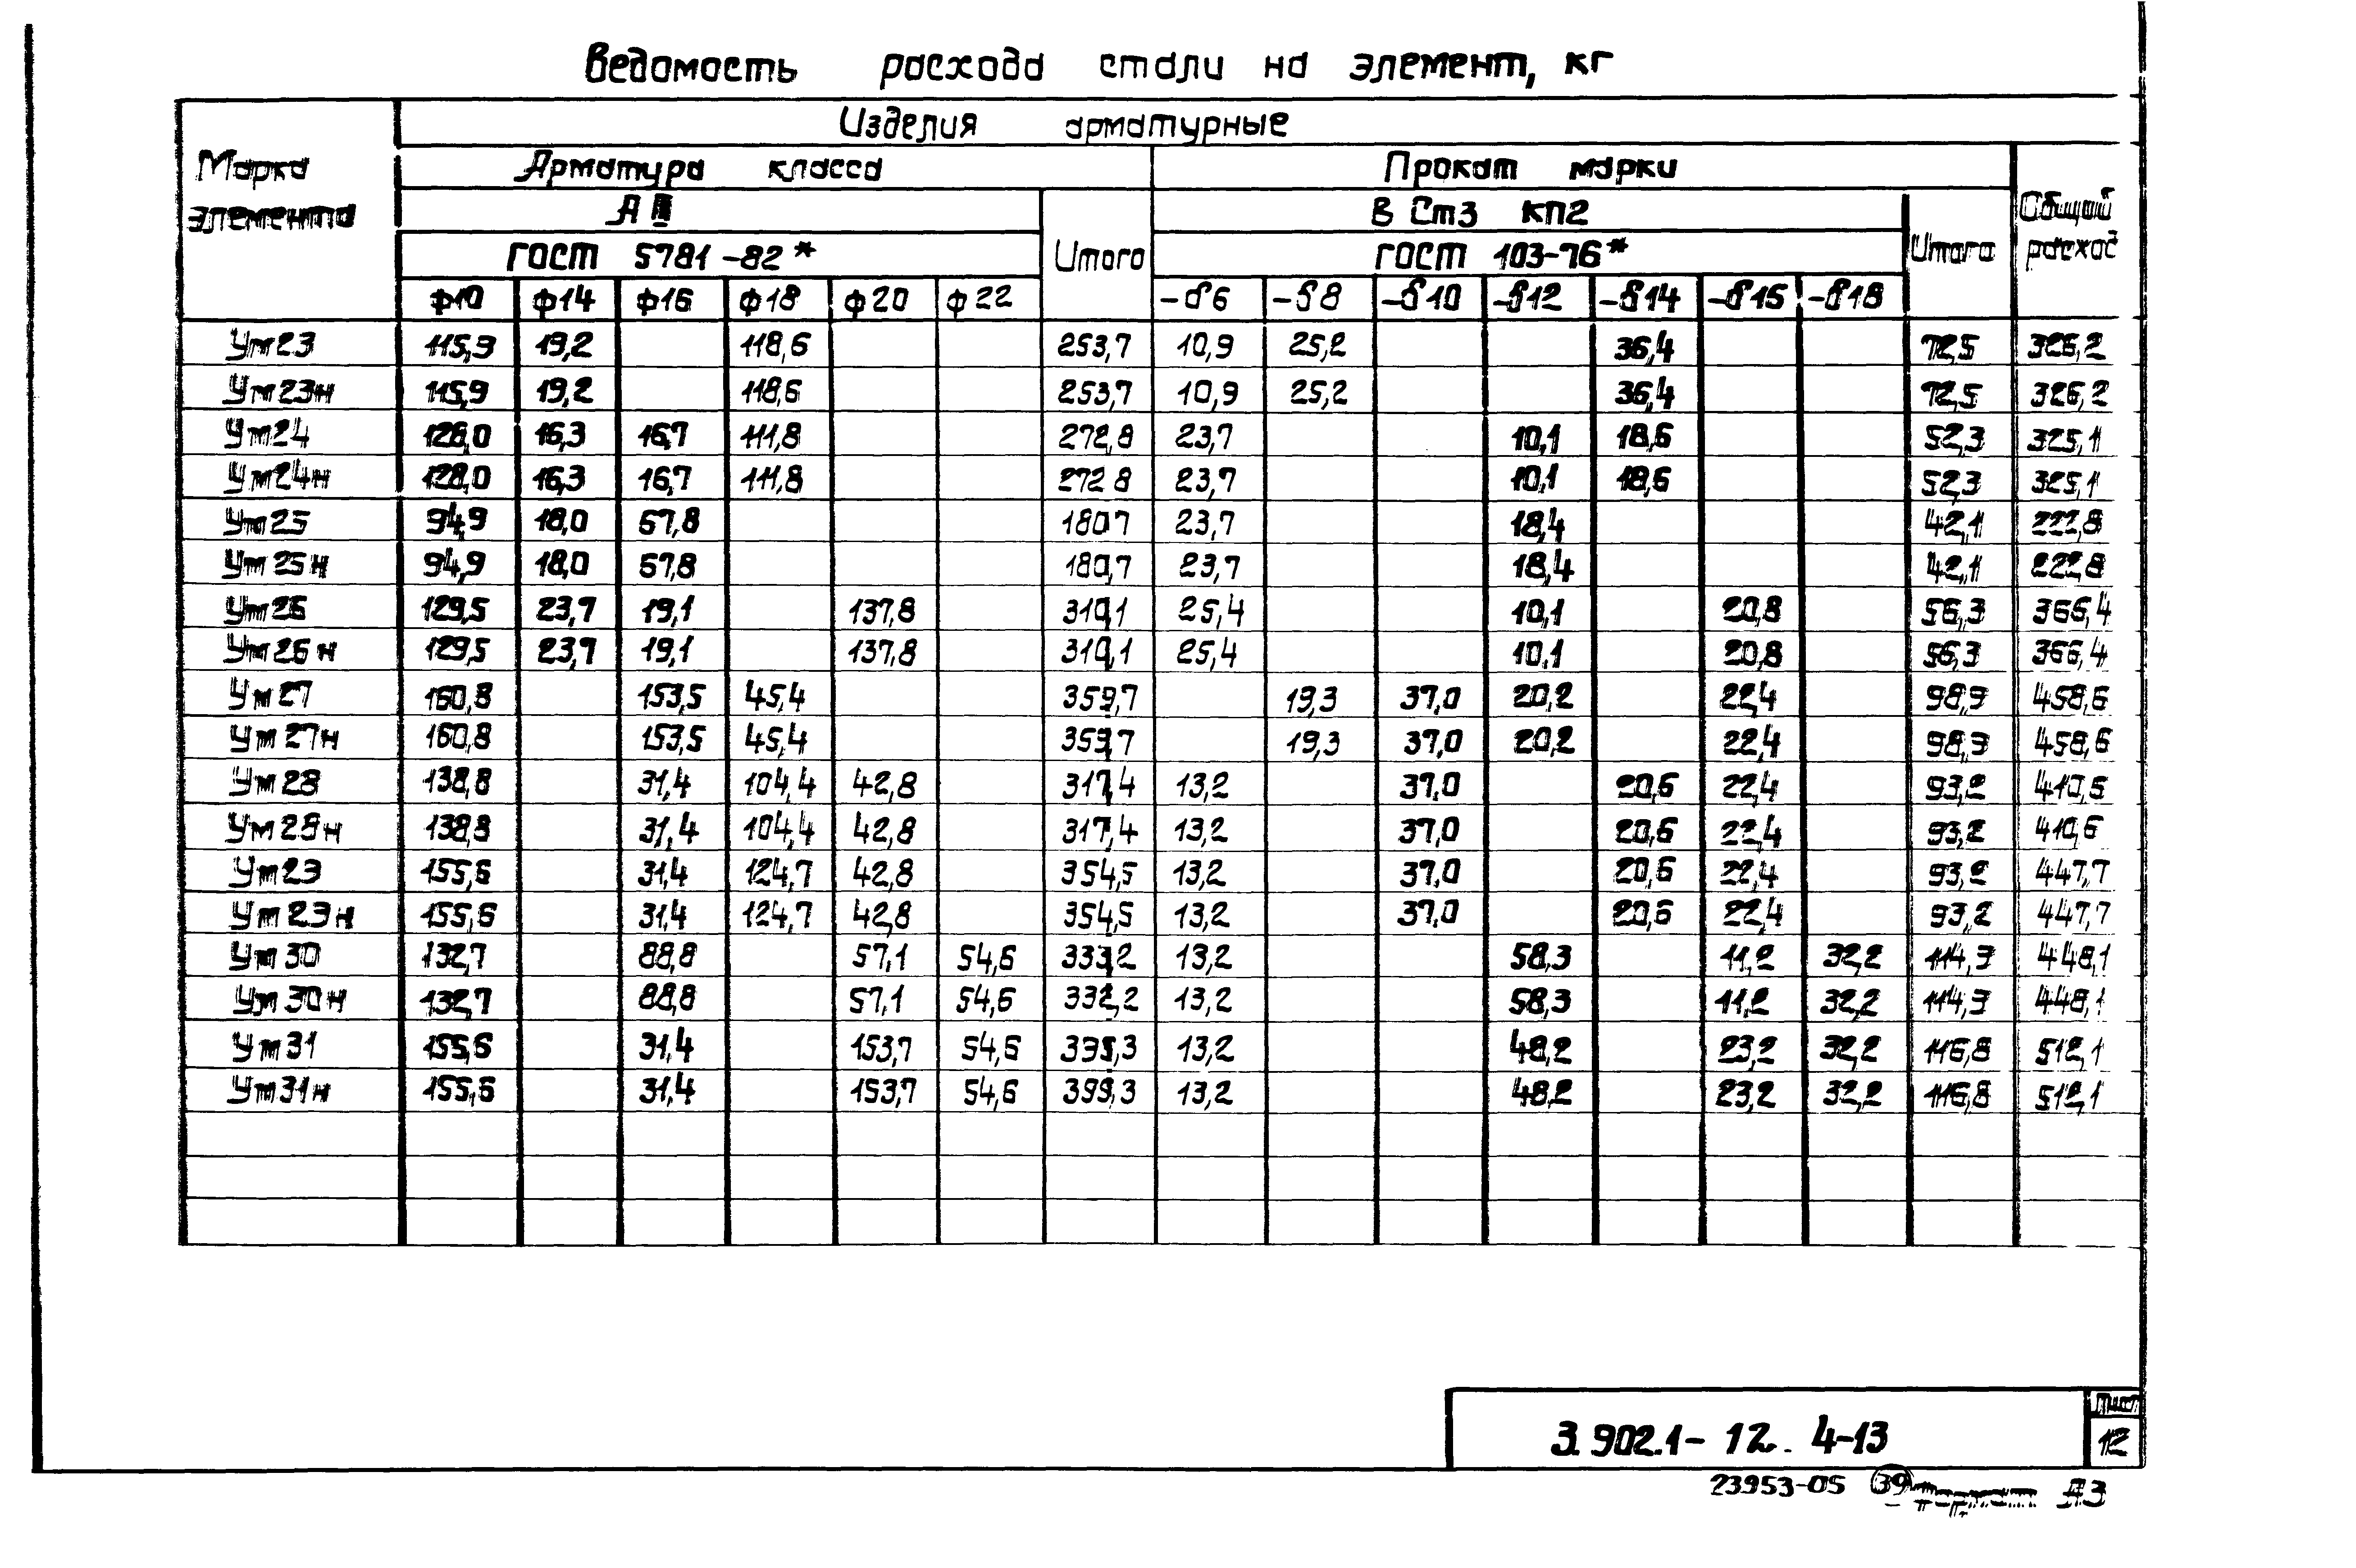 Ведомость расхода стали на элемент, кг
Марка элемента
Изделия арматурные
Арматура класса
Прокат марки
Общий расход
А III
Итого
В Ст3 кп2
Итого
ГОСТ 5781-82*
ГОСТ 103-76*
ф10 ф14 ф16 ф18 ф20 ф22 -δ6 -δ8 -δ10 -δ12 -δ14 -δ16 -δ18
Ум23 115,9 19,2 118,6 253,7 10,9 25,2 36,4 72,5 326,2
Ум23н 115,9 19,2 118,6 253,7 10,9 25,2 36,4 72,5 326,2
Ум24 128,0 16,3 16,7 111,8 272,8 23,7 10,1 18,6 52,3 325,1
Ум24н 128,0 16,3 16,7 111,8 272 8 23,7 10,1 18,6 52,3 325,1
Ум25 94,9 18,0 67,8 180 7 23,7 18,4 42,1 222,8
Ум25н 94,9 18,0 67,8 180,7 23,7 18,4 42,1 222,8
Ум26 129,5 23,7 19,1 137,8 310,1 25,4 10,1 20,8 56,3 366,4
Ум26н 129,5 23,7 19,1 137,8 310,1 25,4 10,1 20,8 56,3 366,4
Ум27 160,8 153,5 45,4 359,7 19,3 37,0 20,2 22,4 98,9 458,6
Ум27н 160,8 153,5 45,4 359,7 19,3 37,0 20,2 22,4 98,9 458,6
Ум28 138,8 31,4 104,4 42,8 317,4 13,2 37,0 20,6 22,4 93,2 410,6
Ум28н 138,8 31,4 104,4 42,8 317,4 13,2 37,0 20,6 22,4 93,2 410,6
Ум29 155,6 31,4 124,7 42,8 354,5 13,2 37,0 20,6 22,4 93,2 447,7
Ум29н 155,6 31,4 124,7 42,8 354,5 13,2 37,0 20,6 22,4 93,2 447,7
Ум30 132,7 88,8 57,1 54,6 333,2 13,2 58,3 11,2 32,2 114,9 448,1
Ум30н 132,7 88,8 57,1 54,6 333,2 13,2 58,3 11,2 32,2 114,9 448,1
Ум31 155,6 31,4 153,7 54,6 395,3 13,2 48,2 23,2 32,2 116,8 512,1
Ум31н 155,6 31,4 153,7 54,6 395,3 13,2 48,2 23,2 32,2 116,8 512,1
3.902.1-12. 4-13
Лист
12
23953-05 39 А3